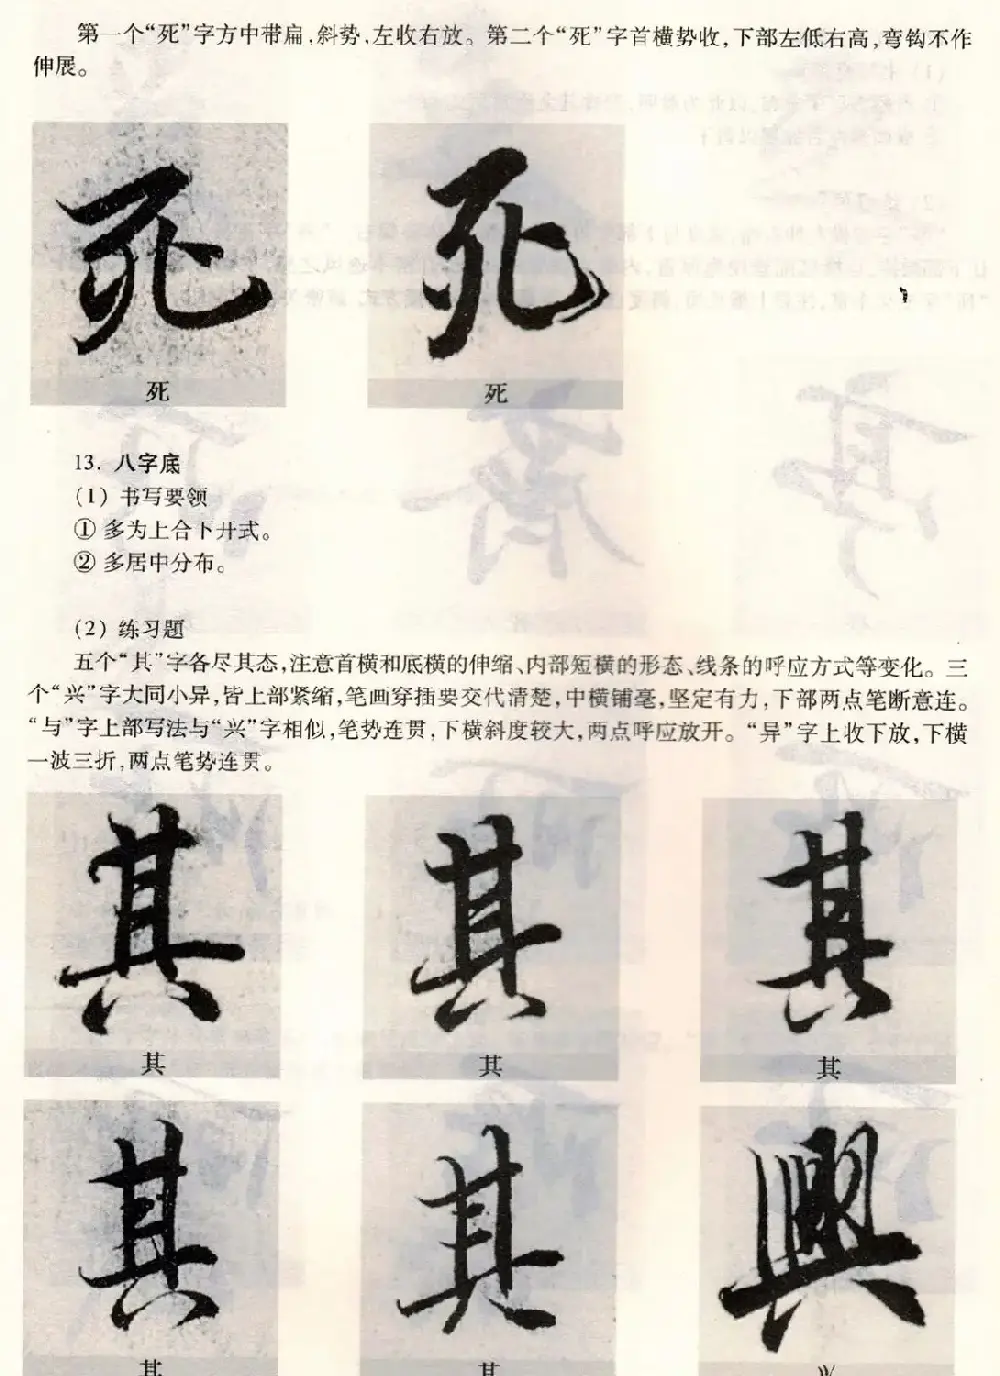 第一个“死”字方中带扁,斜势、左收右放。第二个“死”字首横势收,下部左低右高,弯钩不作
伸展。
死 死
死 死
13. 八字底
(1) 书写要领
① 多为上合下开式。
② 多居中分布。
(2) 练习题
五个“其”字各尽其态,注意首横和底横的伸缩、内部短横的形态、线条的呼应方式等变化。三
个“兴”字大同小异,皆上部紧缩,笔画穿插要交代清楚,中横铺毫,坚定有力,下部两点笔断意连。
“与”字上部写法与“兴”字相似,笔势连贯,下横斜度较大,两点呼应放开。“异”字上收下放,下横
一波三折,两点笔势连贯。
其 其 其
其 其 其
其 其 興
其 其